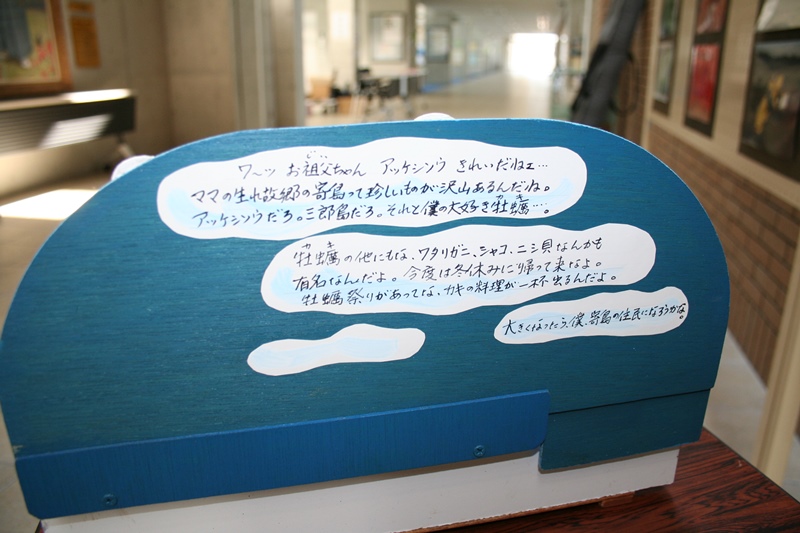 ワ〜ッ お祖父ちゃん アッケシソウ きれいだねェ…
ママの生れ故郷の寄島って珍しいものが沢山あるんだね。
アッケシソウだろ。三郎島だろ。それと僕の大好き牡蠣…。
牡蠣の他にもな、ワタリガニ、シャコ、ニシ貝なんかも
有名なんだよ。今度は冬休みに帰って来なよ。
牡蠣祭りがあってな、カキの料理が一杯出るんだよ。
大きくなったら、僕、寄島の住民になろうかな。